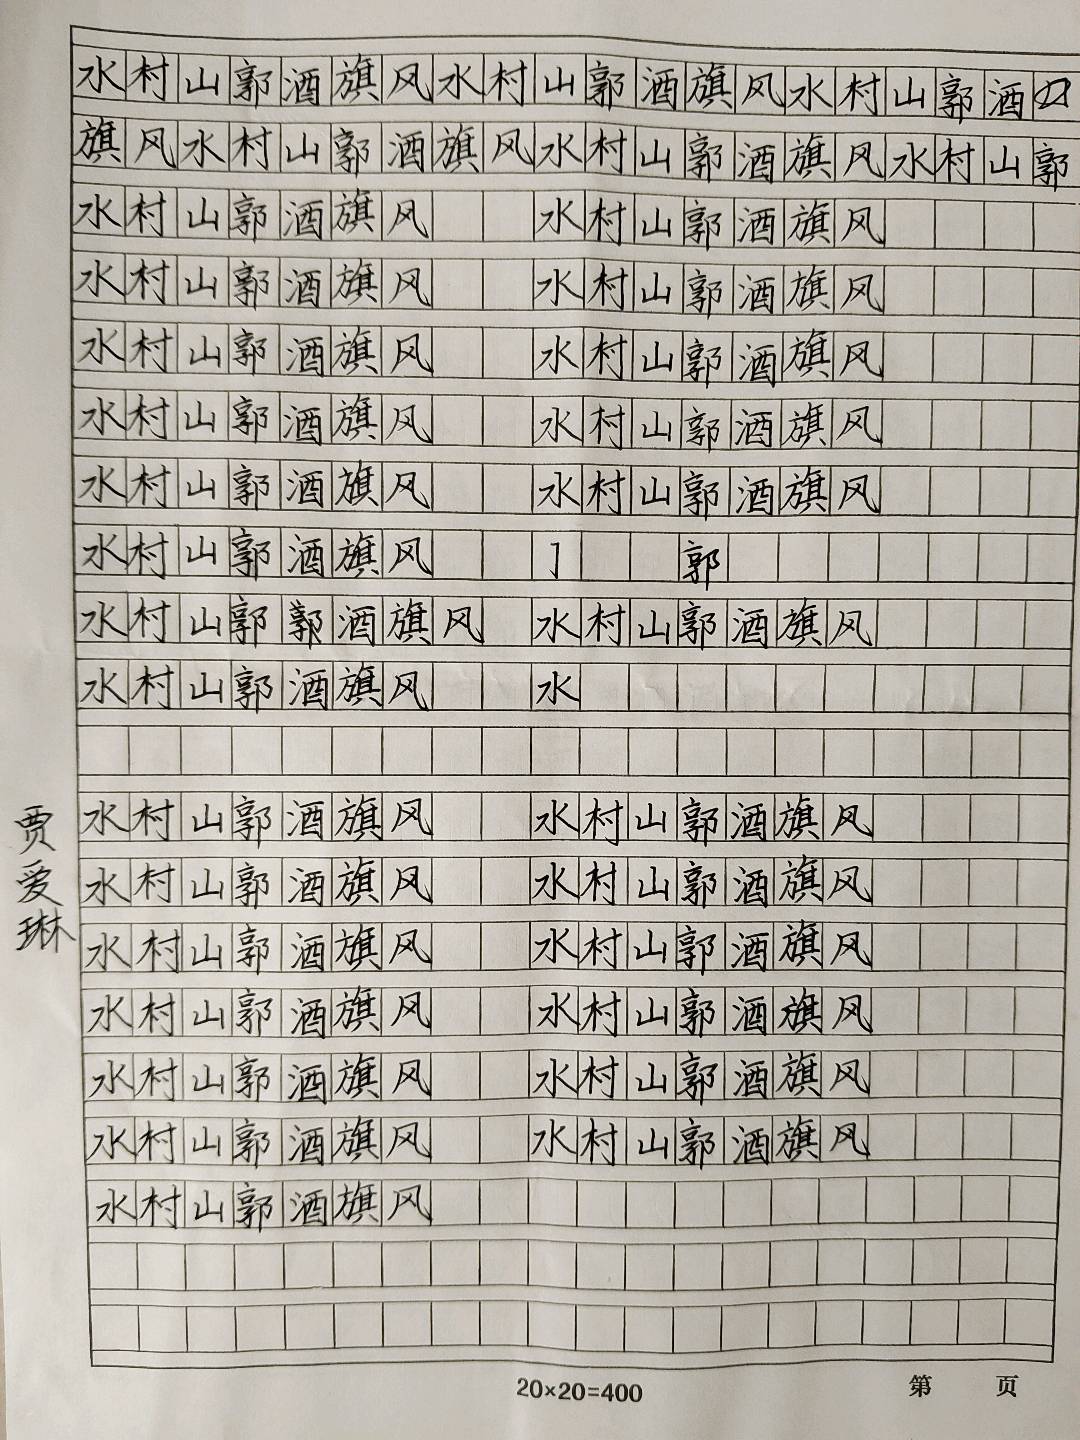 水村山郭酒旗风水村山郭酒旗风水村山郭酒
旗风水村山郭酒旗风水村山郭酒旗风水村山郭
水村山郭酒旗风 水村山郭酒旗风
水村山郭酒旗风 水村山郭酒旗风
水村山郭酒旗风 水村山郭酒旗风
水村山郭酒旗风 水村山郭酒旗风
水村山郭酒旗风 水村山郭酒旗风
水村山郭酒旗风 亅 郭
水村山郭郭酒旗风 水村山郭酒旗风
水村山郭酒旗风 水
水村山郭酒旗风 水村山郭酒旗风
水村山郭酒旗风 水村山郭酒旗风
水村山郭酒旗风 水村山郭酒旗风
水村山郭酒旗风 水村山郭酒旗风
水村山郭酒旗风 水村山郭酒旗风
水村山郭酒旗风 水村山郭酒旗风
水村山郭酒旗风
贾爱琳
20×20=400
第 页